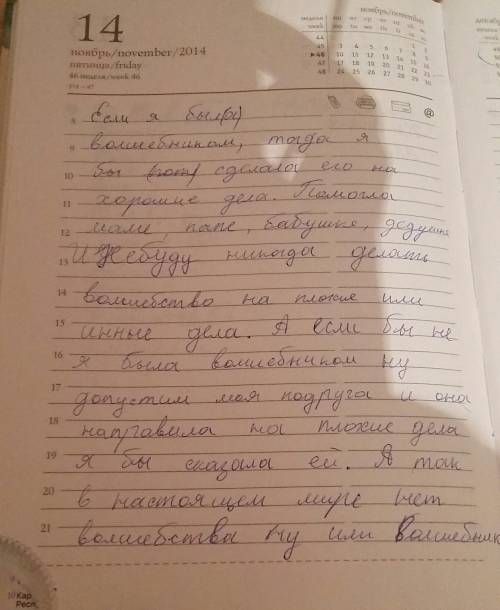 14
ноябрь/november/2014
пятница/friday
46 неделя/week 46
318 – 47
ноябрь/november
неделя пн вт ср чт пт сб вс
week mo tu we th fr sa su
44 1 2
45 3 4 5 6 7 8 9
▸46 10 11 12 13 14 15 16
47 17 18 19 20 21 22 23
48 24 25 26 27 28 29 30
декабрь
неделя
week
@
8 Если я был(а)
9 волшебником, тогда я
10 бы сделала его на
11 хорошие дела. Помогла
12 маме, папе, бабушке, дедушке
13 И Небуду никогда делать
14 волшебство на плохие или
15 инные дела. А если бы не
16 я была волшебником ну
17 допустим моя подруга и она
18 направила на плохие дела
19 я бы сказала ей. А так
20 в настоящем мире нет
21 волшебства ну или волшебник
Кар
Респ